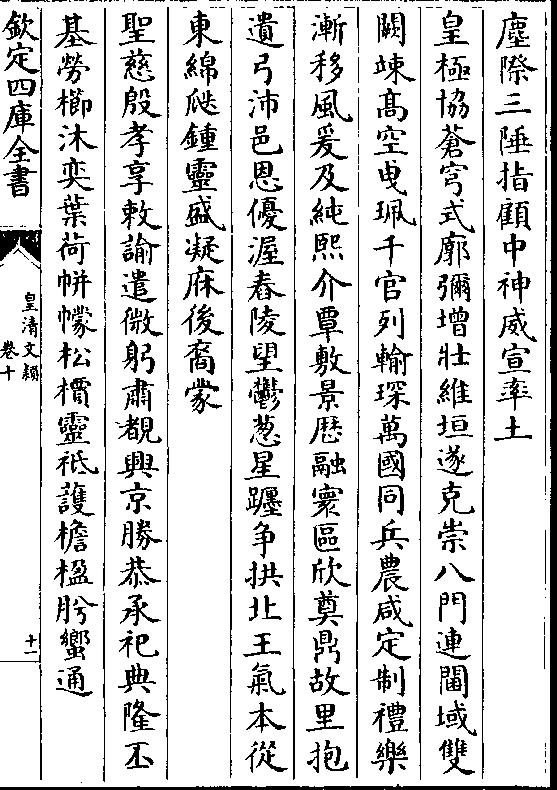 塵際三陲指顧中神威宣率土
皇極協蒼穹式廓彌增壯維垣遂克崇八門連闉域雙
闕竦髙空曵珮千官列輸琛萬國同兵農咸定制禮樂
漸移風爰及純熙介覃敷景厯融寰區欣奠鼎故里抱
遺弓沛邑恩優渥舂陵望鬱葱星躔争拱北王氣本從
東綿瓞鍾靈盛凝庥後裔蒙
聖慈殷孝享敕諭遣微躬肅覩興京勝恭承祀典隆丕
基勞櫛沐奕葉荷帡幪松檟靈祗䕶檐楹肹蠁通
欽定四庫全書
皇清文穎
卷十
十一